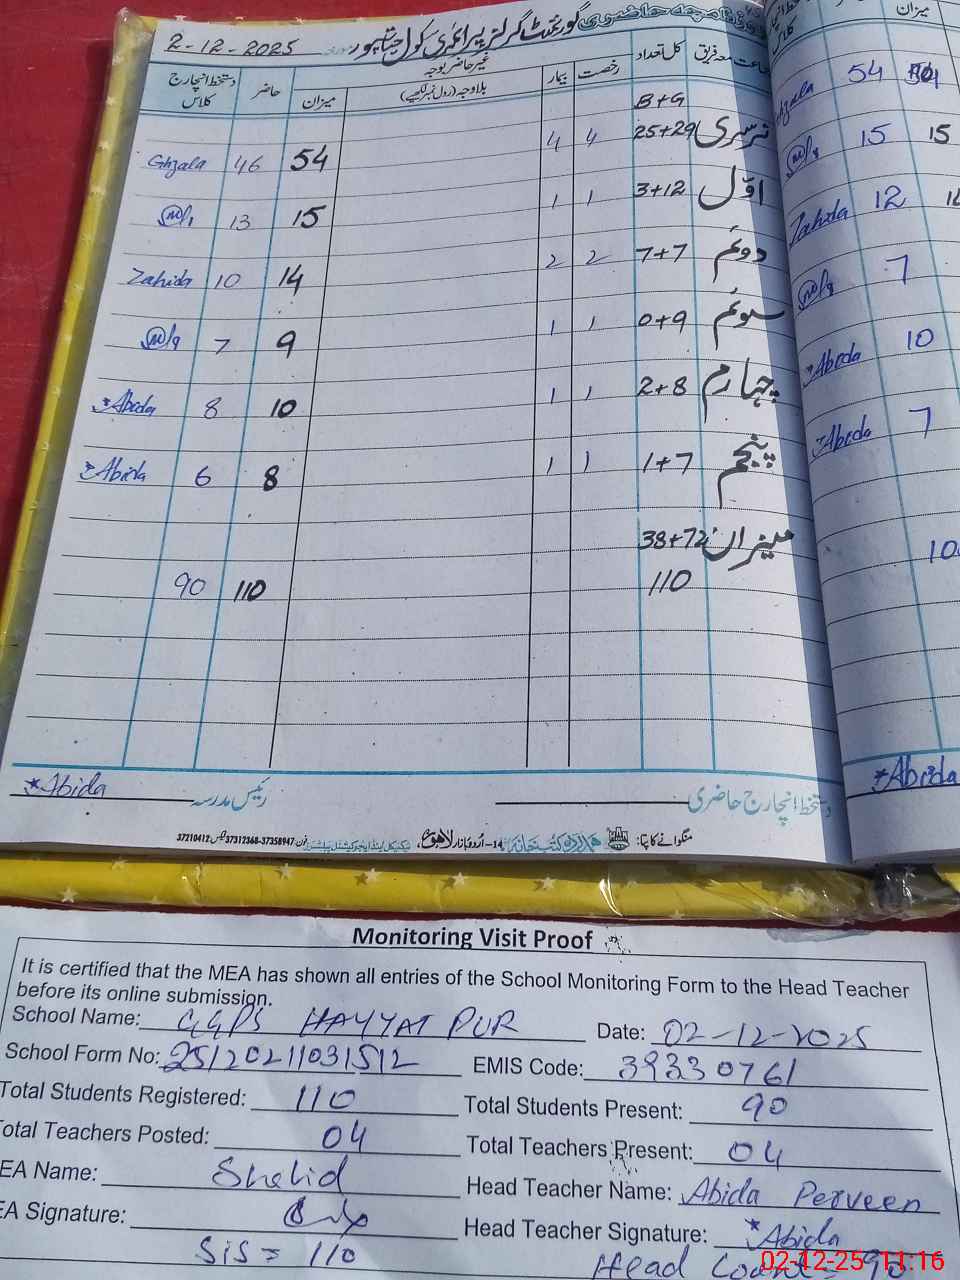 2-12-2025 گورنمنٹ گرلز پرائمری سکول حیات پور
جماعت معہ فریق کل تعداد رخصت بیمار غیر حاضر بوجہ بلاوجہ (رول نمبر لکھیے) میزان حاضر دستخط انچارج کلاس
B+G
نرسری 25+29 4 4 54 46 Ghzala
اوّل 3+12 1 1 15 13
دوئم 7+7 2 2 14 10 Zahida
سوئم 0+9 1 1 9 7
چہارم 2+8 1 1 10 8 *Abida
پنجم 1+7 1 1 8 6 *Abida
میزان 38+72
110 110 90
دستخط انچارج حاضری رئیس مدرسہ *Abida
منگوانے کا پتا: 14-اُردو بازار لاہور فون: 37312368-37358947 37210412
میزان
کلاس
54
15 15
Zahida 12
7
*Abida 10
*Abida 7
*Abida
Monitoring Visit Proof
It is certified that the MEA has shown all entries of the School Monitoring Form to the Head Teacher
before its online submission.
School Name: GGPS HAYYAT PUR Date: 02-12-2025
School Form No: 25120211031512 EMIS Code: 39330761
Total Students Registered: 110 Total Students Present: 90
Total Teachers Posted: 04 Total Teachers Present: 04
EA Name: Shahid Head Teacher Name: Abida Perveen
EA Signature: Head Teacher Signature: *Abida
SIS = 110 Head Count = 90
02-12-25 11:16